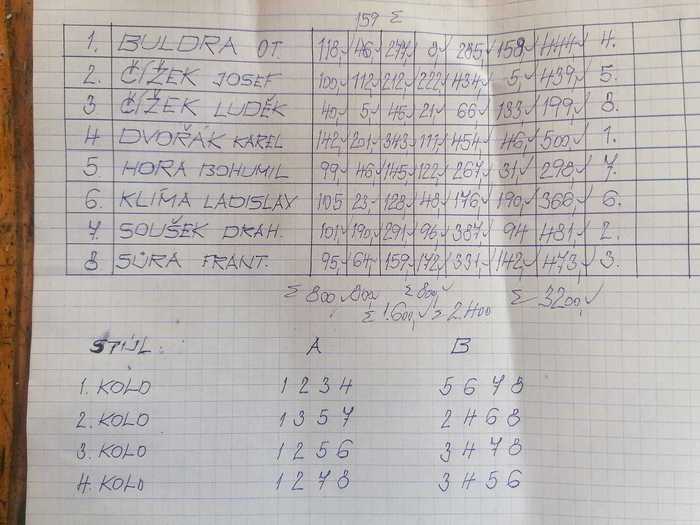 159 Σ
1. BULDRA OT. 118,✓ 46,✓ 277✓ 8,✓ 285,✓ 159✓ 444✓ 4.
2. ČÍŽEK JOSEF 100,✓ 112✓ 212,✓ 222✓ 434✓ 5,✓ 439,✓ 5.
3 ČÍŽEK LUDĚK 40,✓ 5✓ 45✓ 21✓ 66✓ 133✓ 199,✓ 8.
4 DVOŘÁK KAREL 142,✓ 201✓ 343✓ 111✓ 454✓ 46✓ 500,✓ 1.
5 HORA BOHUMIL 99,✓ 46✓ 145✓ 122✓ 267✓ 31✓ 298,✓ 7.
6. KLÍMA LADISLAV 105 23,✓ 128✓ 48✓ 176✓ 190✓ 366✓ 6.
7. SOUŠEK DRAH. 101✓ 190✓ 291✓ 96✓ 387✓ 94 481,✓ 2.
8 SŮRA FRANT. 95,✓ 64✓ 159✓ 172✓ 331✓ 142✓ 473,✓ 3.
Σ 800 800 Σ 800✓ Σ 3200,✓
Σ 1.600,✓ Σ 2400
STŮL A B
1. KOLO 1 2 3 4 5 6 7 8
2. KOLO 1 3 5 7 2 4 6 8
3. KOLO 1 2 5 6 3 4 7 8
4. KOLO 1 2 7 8 3 4 5 6